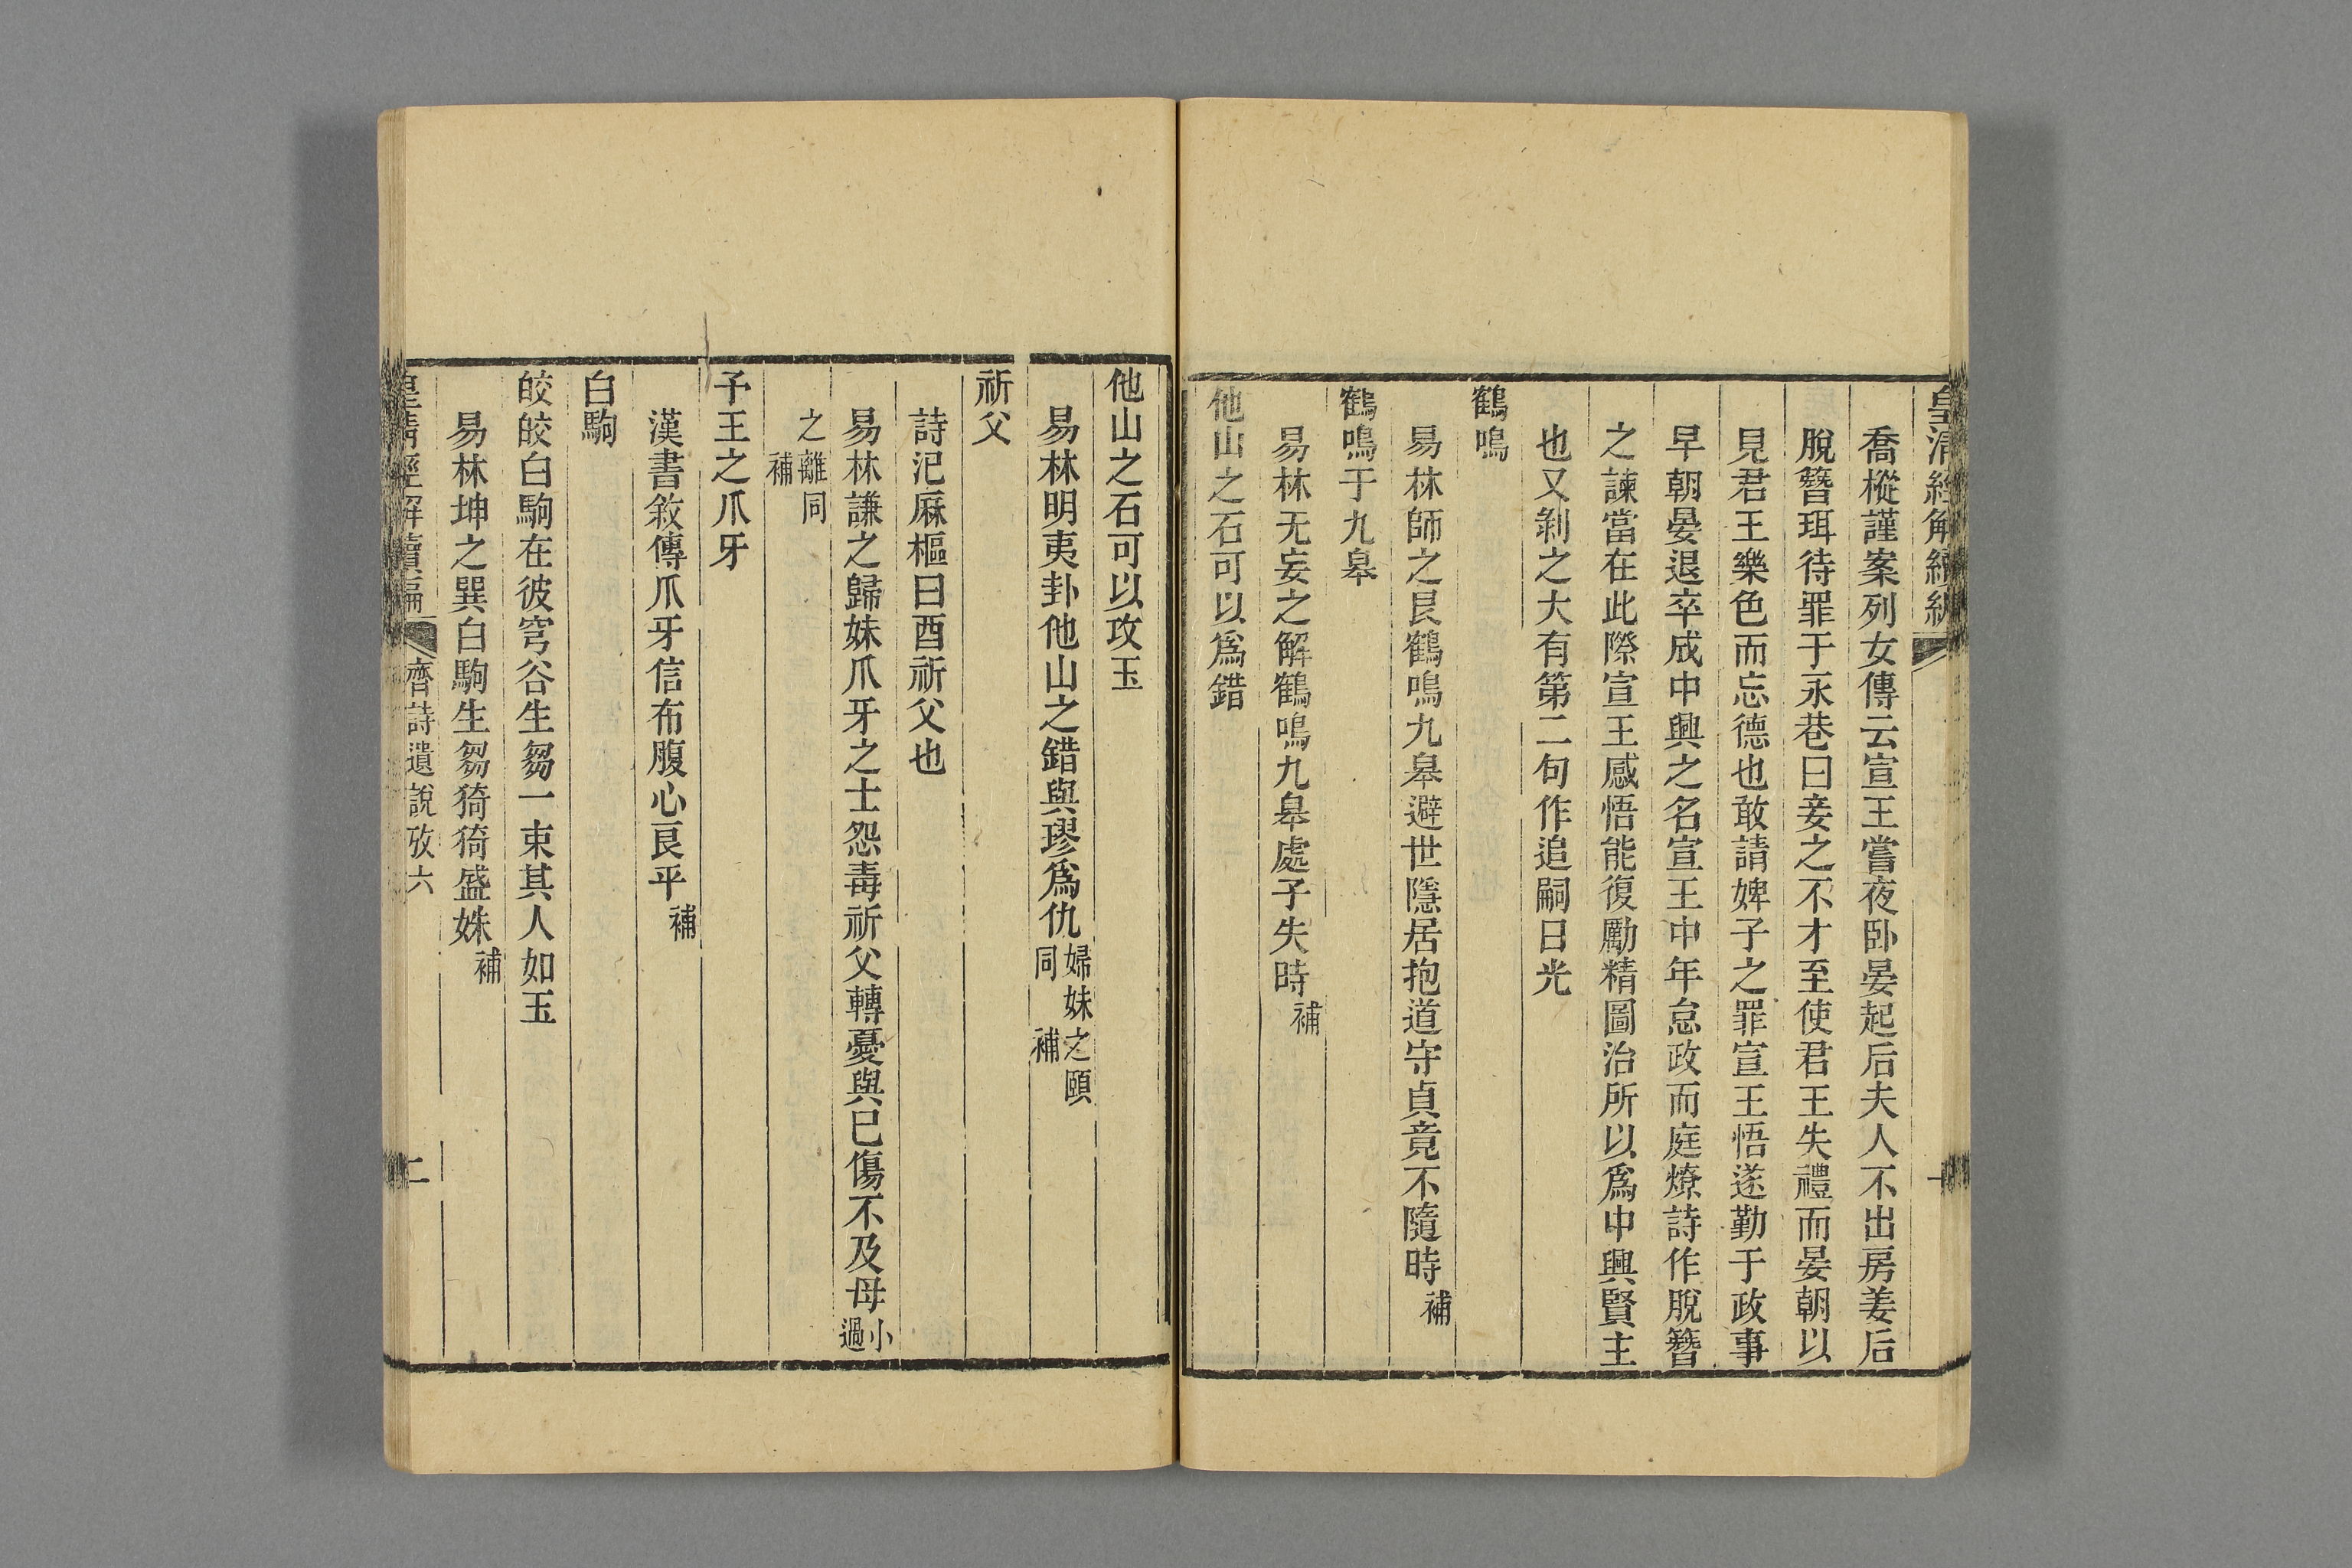 皇清經解續編
喬樅謹案列女傳云宣王嘗夜卧晏起后夫人不出房姜后
脫簪珥待罪于永巷曰妾之不才至使君王失禮而晏朝以
見君王樂色而忘德也敢請婢子之罪宣王悟遂勤于政事
早朝晏退卒成中興之名宣王中年怠政而庭燎詩作脫簪
之諫當在此際宣王感悟能復勵精圖治所以爲中興賢主
也又剝之大有第二句作追嗣日光
鶴鳴
易林師之艮鶴鳴九皋避世隱居抱道守貞竟不隨時補
鶴鳴于九皋
易林无妄之解鶴鳴九皋處子失時補
他山之石可以爲錯
他山之石可以攻玉
易林明夷卦他山之錯與璆爲仇婦妹之頤同補
祈父
詩汜厤樞曰酉祈父也
易林謙之歸妹爪牙之士怨毒祈父轉憂與已傷不及母小過
之離同補
予王之爪牙
漢書敘傳爪牙信布腹心良平補
白駒
皎皎白駒在彼穹谷生芻一束其人如玉
易林坤之巽白駒生芻猗猗盛姝補
皇清經解續編 齊詩遺說攷六 二